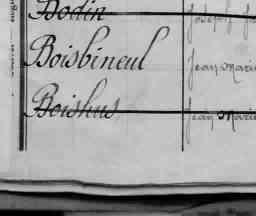 Bodin Joseph
Boisbineul Jean Marie
Boishus Jean Marie